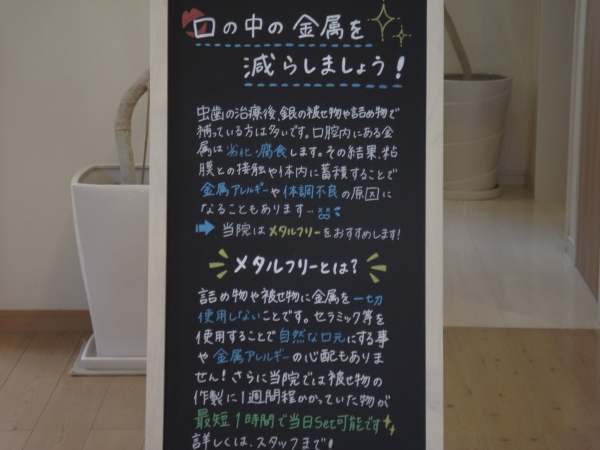 口の中の金属を
減らしましょう!
虫歯の治療後、銀の被せ物や詰め物で
補っている方は多いです。口腔内にある金
属は劣化・腐食します。その結果、粘
膜との接触や体内に蓄積することで
金属アレルギーや体調不良の原因に
なることもあります…
➡ 当院はメタルフリーをおすすめします!
メタルフリーとは?
詰め物や被せ物に金属を一切
使用しないことです。セラミック等を
使用することで自然な口元にする事
や金属アレルギーの心配もありま
せん!さらに当院では被せ物の
作製に1週間程かかっていた物が
最短1時間で当日Set可能です
詳しくは、スタッフまで!